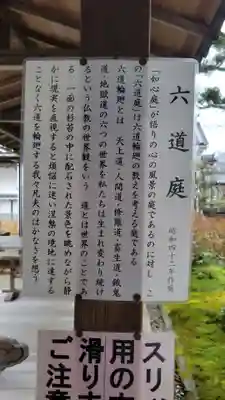 六道庭
昭和四十二年作庭
「如心庭」が悟りの心の風景の庭であるのに対し こ
の「六道庭」は六道輪廻の教えを考える庭である
六道輪廻とは 天上道・人間道・修羅道・畜生道・餓鬼
道・地獄道の六つの世界を私たちは生まれ変わり続け
るという仏教の世界観をいう 道とは世界のことであ
る 一面の杉苔の中に配石された景色を眺めながら静
かに現実を直視すると煩悩に迷い涅槃の境地に達する
ことなく六道を輪廻する我々凡夫のはかなさを想う
スリ
用の
滑り
ご注意